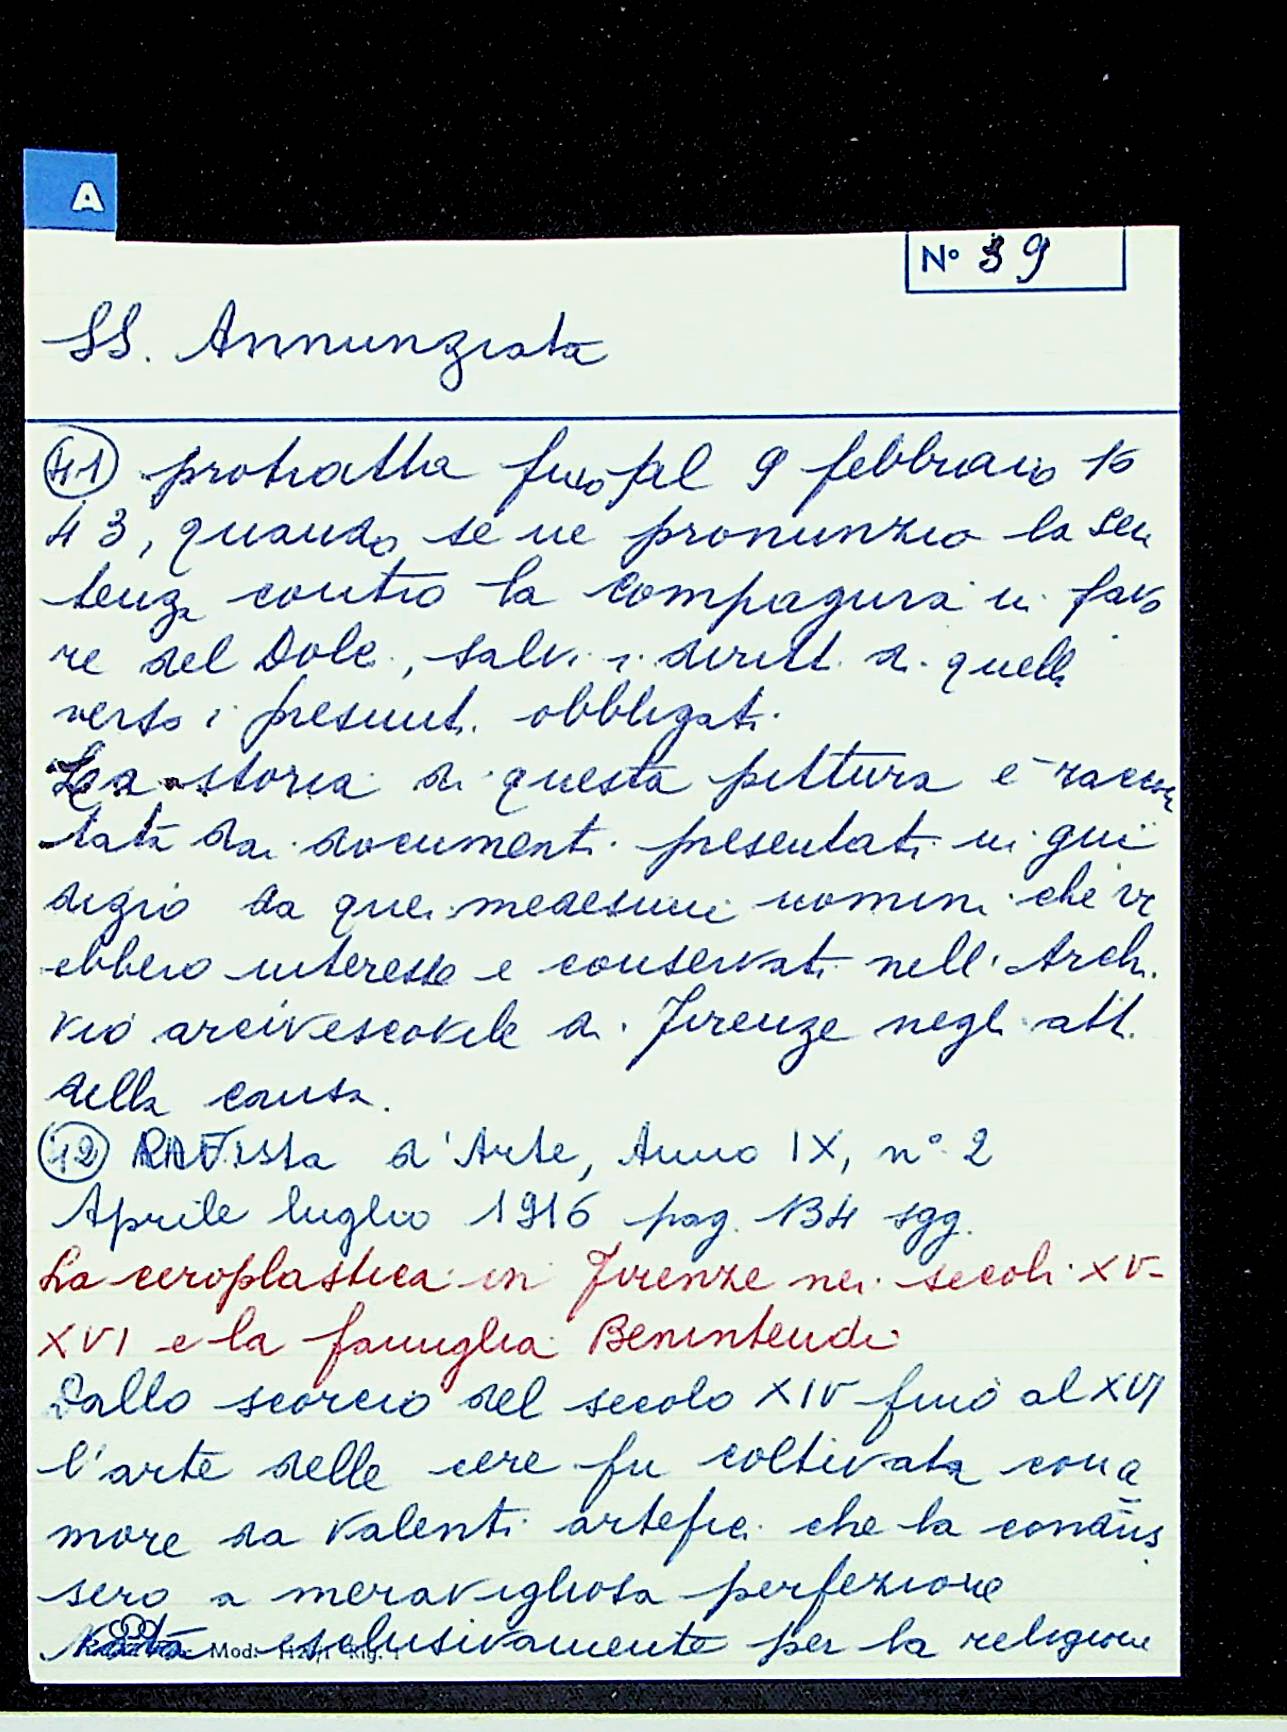 A
N° 39
SS. Annunziata
41 protratta fino al 9 febbraio 16
43, quando se ne pronunziò la sen
tenza contro la Compagnia in favo
re del Dolci, salvi i diritti di quella
verso i presunti obbligati.
La storia di questa pittura è raccon
tata dai documenti presentati in giu
dizio da quei medesimi uomini che vi
ebbero interesse e conservati nell'Archi
vio arcivescovile di Firenze negli atti
della causa.
42 Rivista d'Arte, Anno IX, n° 2
Aprile luglio 1916 pag. 134 sgg.
La ceroplastica in Firenze nei secoli XV-
XVI e la famiglia Benintendi
Dallo scorcio del secolo XIV fino al XVI
l'arte delle cere fu coltivata con a
more da valenti artefici che la condus
sero a meravigliosa perfezione
Nata esclusivamente per la religione
Mod.